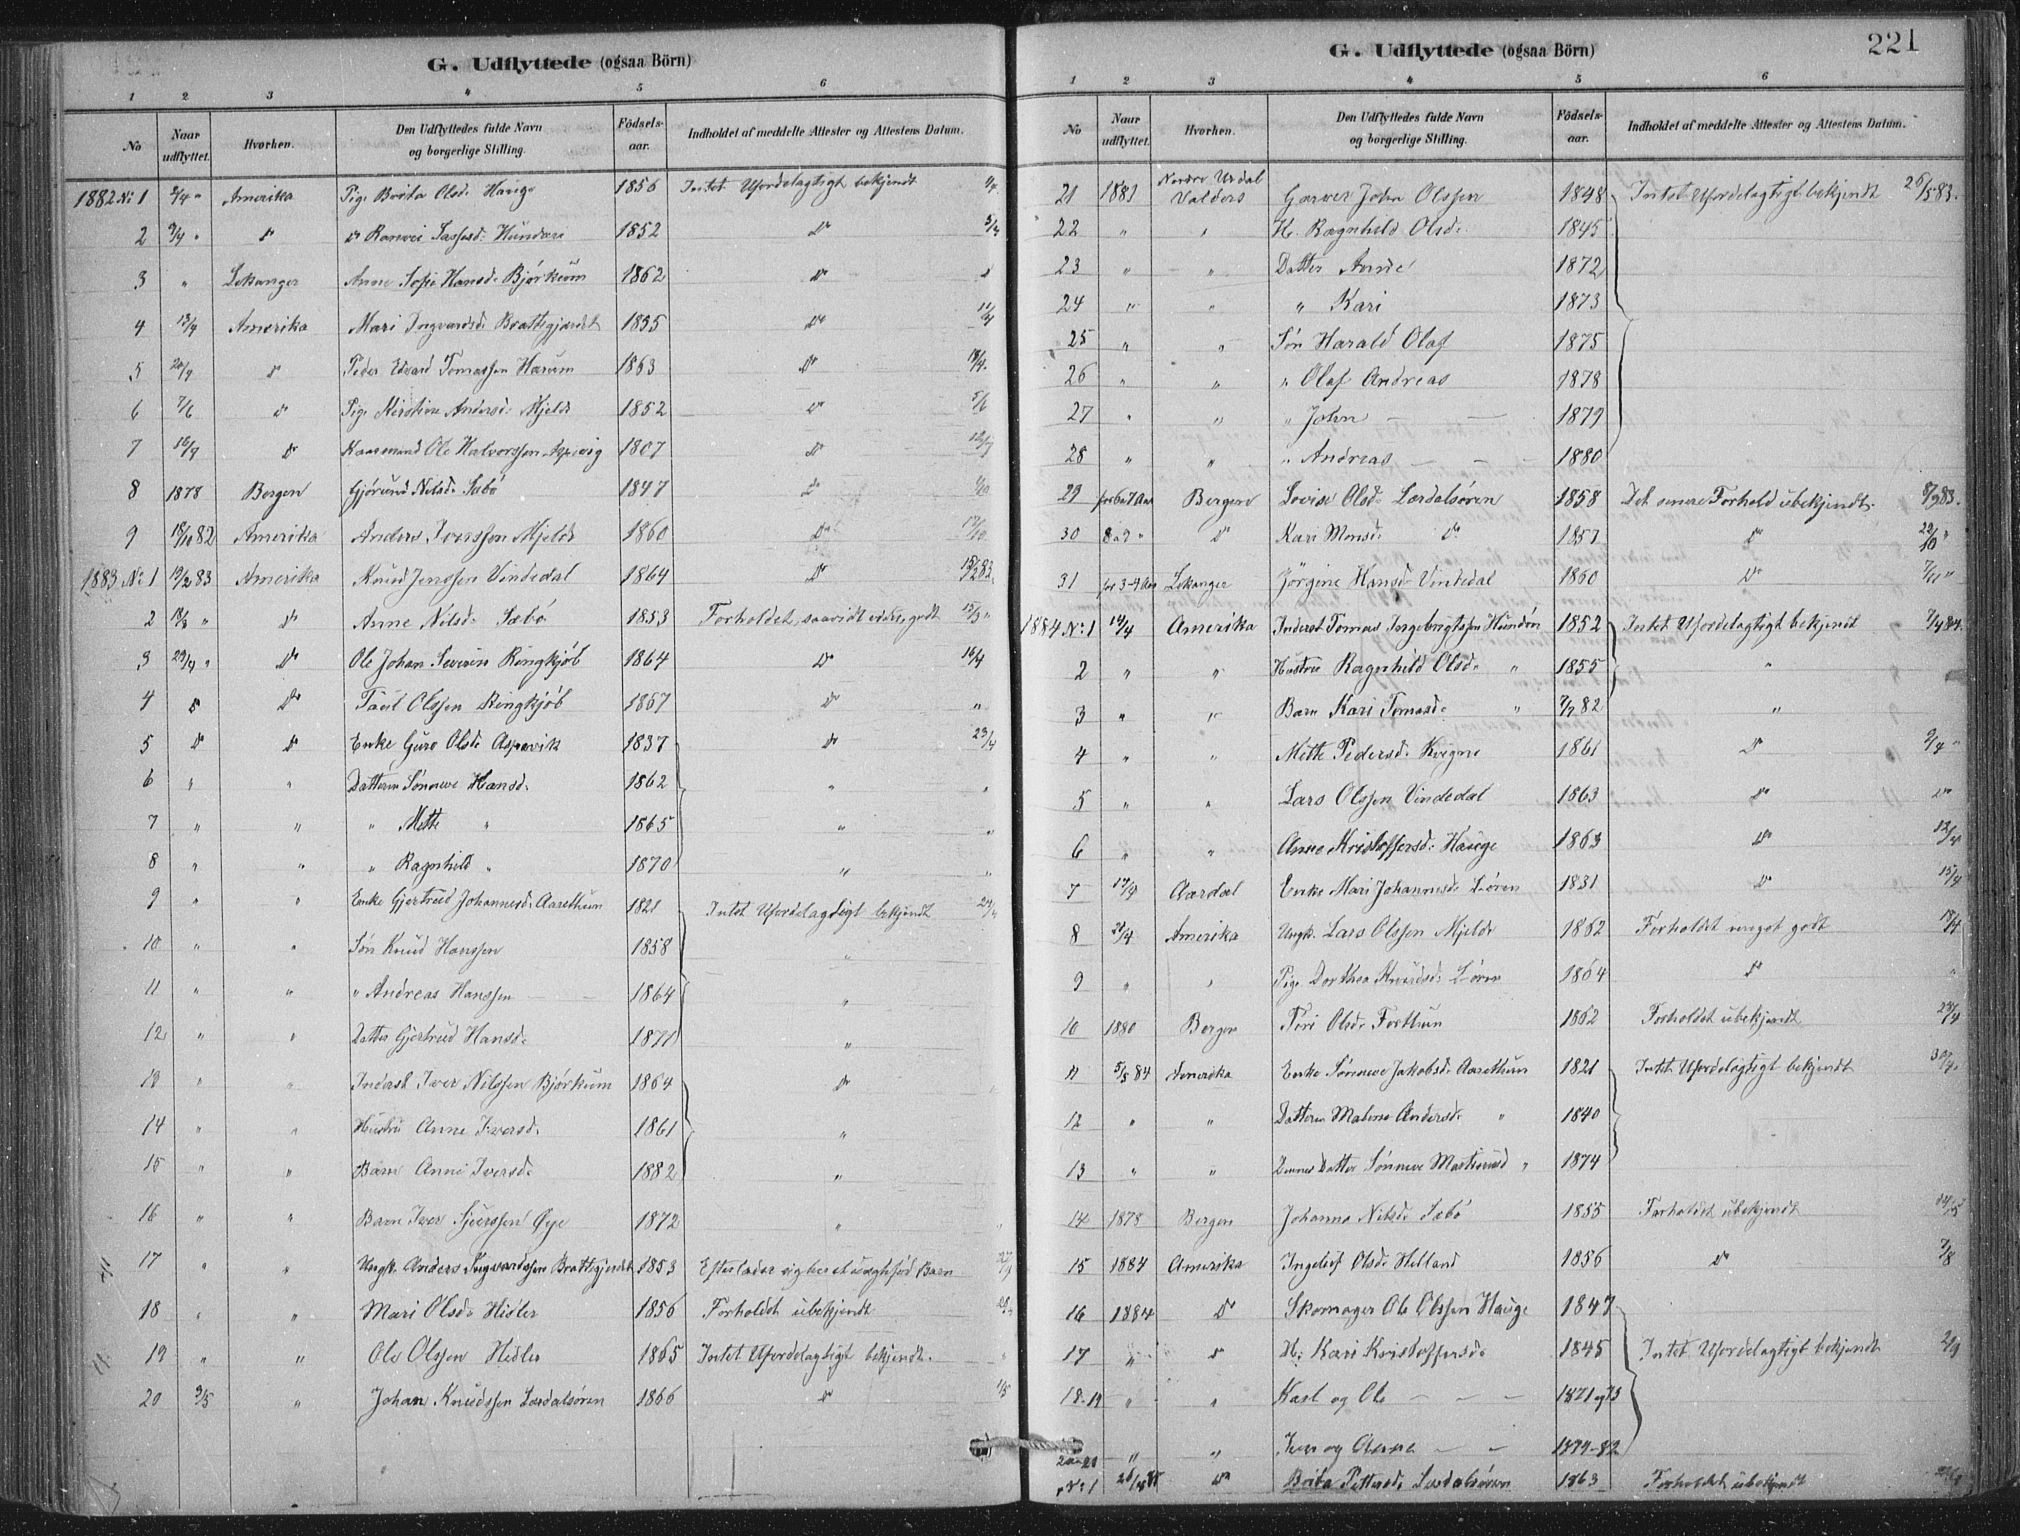 G. Udflyttede (ogsaa Börn)
1 2 3 4 5 6
No
Naar udflyttet.
Hvorhen.
Den Udflyttedes fulde Navn og borgerlige Stilling.
Födsels-aar.
Indholdet af meddelte Attester og Attestens Datum.
1882 No 1 Amerika Pige Brita Olsd. Hauge 1856 Intet Ufordelagtigt bekjendt
2 Do Do 1852 Do
3 " Lekanger Anne Sofie Hansd. Bjørkum 1862 Do
4 Amerika Mari Ingvardsd. Brattegjerdet 1835 Do
5 Do Peder Edvard Tomassen Harum 1863 Do
6 7/6 Do Pige Kirstine Andersd. Mjelde 1852 Do
7 16/9 Do Ole Halvorssen 1807 Do
8 1878 Bergen Gjørund Nilsd. Sæbö 1847
9 18/10 82 Amerika Anders Iverssen Mjelde 1860 Do
1883 No 1 Amerika Knud Jenssen Vindedal 1864 Do
2 Do Anne Nilsd. Sæbö 1853 Forholdet, saavidt vides, godt
3 Do Ole Johan Severin Ringkjöb 1864 Do 16/4
4 Do Olssen Ringkjöb 1867 Do "
5 Do Do Enke Guro Olsd. Aspevik 1837 Do 23/4
6 " " Datteren Sönneve Hansd. 1862 " "
7 " " " Mette " 1865 " "
8 " " " Ragnhild " 1870 " "
9 " " Enke Gjertrud Johannesd. Aarethun 1821 Intet Ufordelagtigt bekjendt
10 " " Søn Knud Hanssen 1858 "
11 " " " Andreas Hanssen 1864 "
12 " " Datter Gjertrud Hansd. 1871 "
13 " " Inderst Iver Nilssen Bjørkum 1864 Do
14 " " Hustru Anne Iversd. 1861 "
15 " " Barn Anne Iversd. 1882 "
16 " " Barn Iver Sjurssen Øye 1872 "
17 " " Ungk. Anders Ingvardssen Brattegjerdet 1853 Efterlader sig her et uægtefød Barn
18 " " Mari Olsd. Hidler 1856 Forholdet ubekjendt
19 " " Ole Olssen Hidler 1865 Intet Ufordelagtigt bekjendt.
20 3/5 " Johan Knudssen Lærdalsören 1866 Do 1/5
G. Udflyttede (ogsaa Börn) 221
1 2 3 4 5 6
No
Naar udflyttet.
Hvorhen.
Den Udflyttedes fulde Navn og borgerlige Stilling.
Födsels-aar.
Indholdet af meddelte Attester og Attestens Datum.
21 1881 Nordre Urdal Valders Garver John Olssen 1848 Intet Ufordelagtigt bekjendt 26/5 83.
22 " " H. Ragnhild Olsd. 1845
23 " " Datter Anne 1872
24 " " " Kari 1873
25 " " Søn Harald Olaf 1875
26 " " " Olaf Andreas 1878
27 " " " John 1879
28 " " " Andreas 1880
29 Bergen Lovise Olsd. Lærdalsören 1858 Det senere Forhold ubekjendt.
30 Do Kari Monsd. Do 1857 Do 22/10 "
31 for 3-4 Aar Lekanger Jörgine Hansd. Vindedal 1860 Do
1884 No 1 Amerika Inderst Tomas Ingebrigtssen Hundön 1852 Intet Ufordelagtigt bekjendt 7/4 84.
2 " " Hustru Ragnhild Olsd. " 1855 "
3 " " Barn Kari Tomasd. " 82 "
4 " " Mette Pedersd. Kvigne 1861 Do
5 " " Lars Olssen Vindedal 1863 Do Do
6 " " Anne Kristoffersd. Hauge 1863 Do 12/4
7 Aardal Enke Mari Johannesd. Lören 1831 Do 15/4
8 Amerika Ungk. Lars Olssen Mjelde 1862 Forholdet meget godt 18/4
9 " " Pige Dorthea Knudsd. Lören 1864 Do "
10 1880 Bergen Olsd. 1862 Forholdet ubekjendt
11 5/5 84 Amerika Enke Sönneve Jakobsd. Aarethun 1821 Intet Ufordelagtigt bekjendt 30/4.
12 " " Datteren Malene Andersd. " 1840
13 " " Dennes Datter Sönneve " 1874
14 1878 Bergen Johanna Nilsd. Sæbö 1855 Forholdet ubekjendt
15 1884 Amerika Ingeleif Olsd. Helland 1856 Do 7/8
16 1884 Do Skomager Ole Olssen Hauge 1847
17 " Do H. Kari Kristoffersd. 1845 Intet Ufordelagtigt bekjendt 2/9
18-19 " " Karl og Ole 1871 og 75
20-21 " " Iver og Anna 1879-82
No 1 Do Brita Pettersd. Lærdalsören 1863 Forholdet ubekjendt